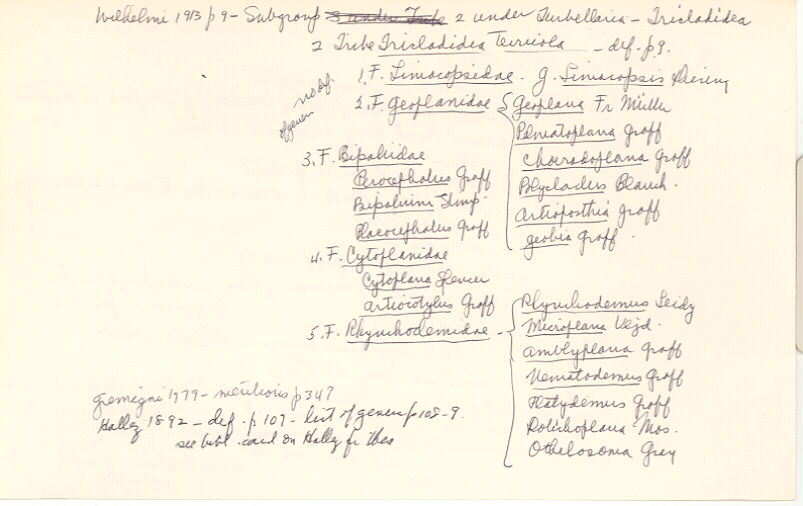 Wilhelmi 1913 p 9 – Subgroup 3 under Tribe 2 under Turbellaria – Tricladidea
2 Tribe Tricladidea Terricola – def. p 9.
1. F. Limacopsidae. g. Limacopsis Diesing
no def. of genera
2. F. Geoplanidae
Geoplana Fr Müller
Pelmatoplana Graff
Choeradoplana Graff
Polycladus Blanch.
Artioposthia Graff
Geobia Graff.
3. F. Bipaliidae
Perocephalus Graff
Bipalium Stimp.
Placocephalus Graff
4. F. Cytoplanidae
Cytoplana Spencer
Artiocotylus Graff
5. F. Rhynchodemidae –
Rhynchodemus Leidy
Microplana Vejd.
Amblyplana Graff
Nematodemus Graff
Platydemus Graff
Dolichoplana Mos.
Othelosoma Gray
Gremigni 1979 – mentions p 347
Hallez 1892 – def. p 107 – list of genera p 108-9.
see bibl. card on Hallez for this